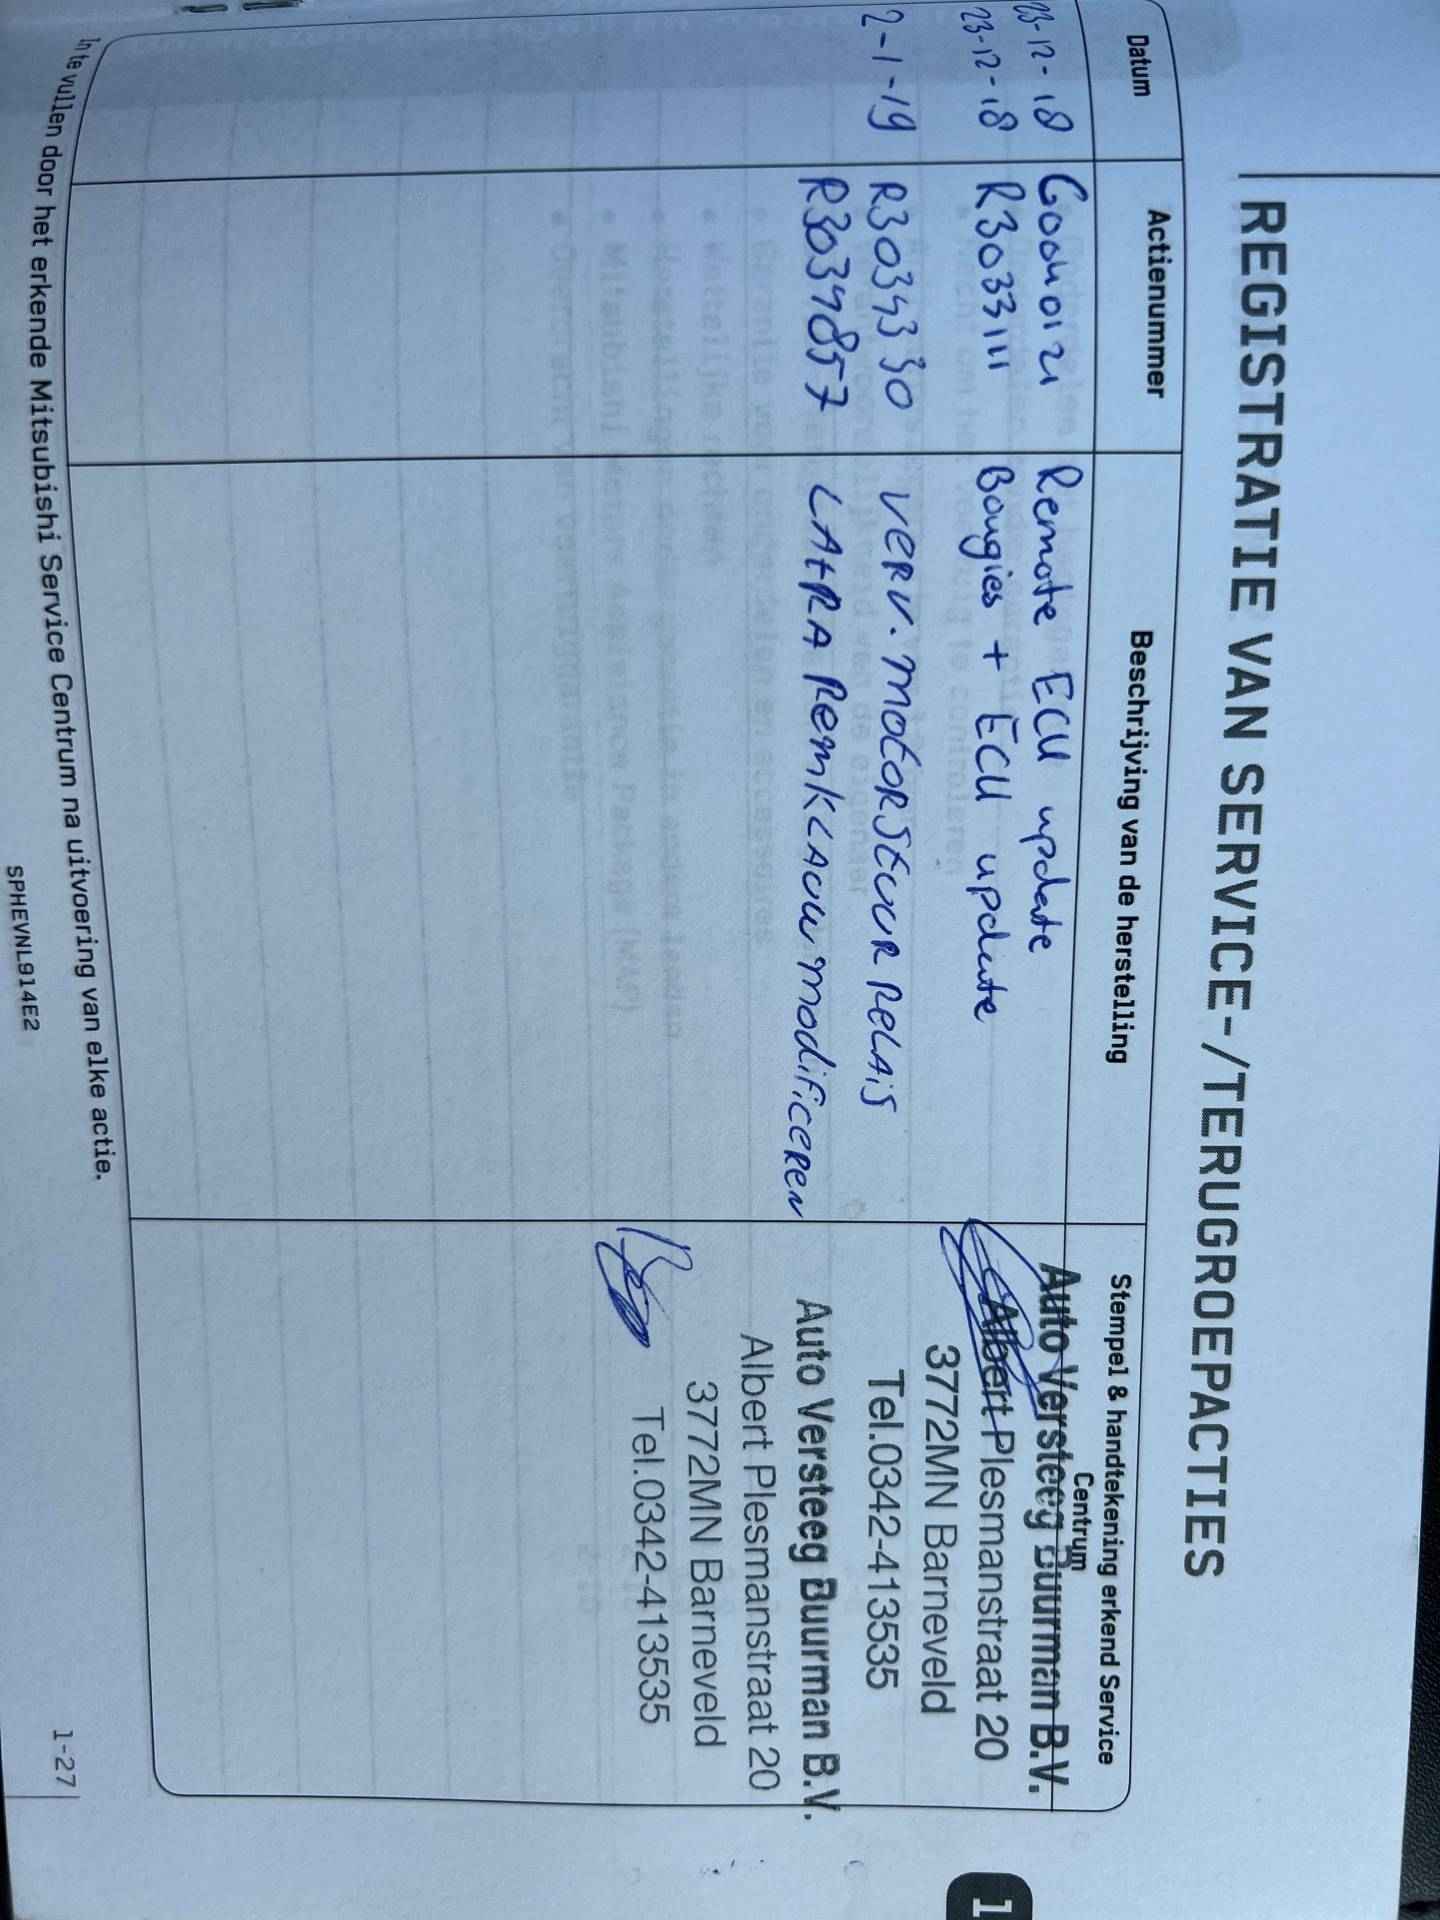 REGISTRATIE VAN SERVICE-/TERUGROEPACTIES
Datum Actienummer Beschrijving van de herstelling Stempel & handtekening erkend Service Centrum
23-12-18 Remote ECU update
23-12-18 R3033111 Bougies + ECU update
2-1-19 R3034330 VERV. MOTORSTUUR RELAIS
R3034857 LA+RA Remklauw modificeren
Auto Versteeg Buurman B.V.
Albert Plesmanstraat 20
3772MN Barneveld
Tel.0342-413535
Auto Versteeg Buurman B.V.
Albert Plesmanstraat 20
3772MN Barneveld
Tel.0342-413535
In te vullen door het erkende Mitsubishi Service Centrum na uitvoering van elke actie.
SPHEVNL914E2
1-27
1